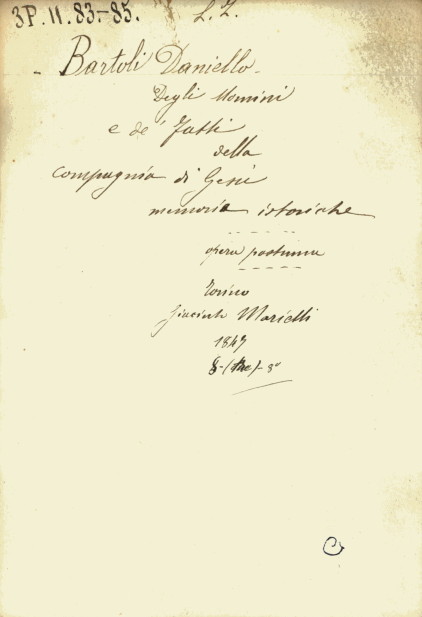 3P. II. 83.-85. L. Z.
- Bartoli Daniello -
Degli Uomini
e de' Fatti
della
Compagnia di Gesù
memorie istoriche
opera postuma
Torino
Giacinto Marietti
1847
8°